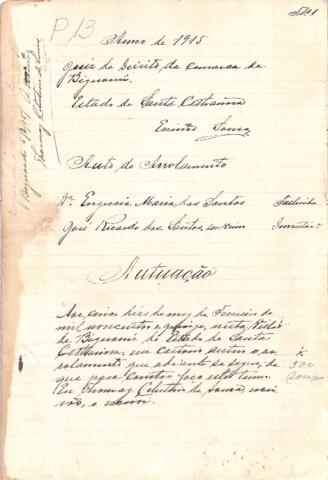 P 13
Anno de 1915
Juiz de Direito da Comarca de
Biguassú
Estado de Santa Catharina
Escrivão Souza
Auto de Arrolamento
D. Engracia Maria dos Santos Fallecida
José Ricardo dos Santos, seu Inventar.
Autuação
Aos cinco dias do mez de Fevereiro de
mil novecentos e quinze, nesta Villa
de Biguassú do Estado de Santa
Catharina, em cartorio autuo o ar-
rolamento que adiante se segue, do
que para constar faço este termo.
Eu Thomaz Celestino de Souza, escri-
vão, o escrevi.
500
Souza